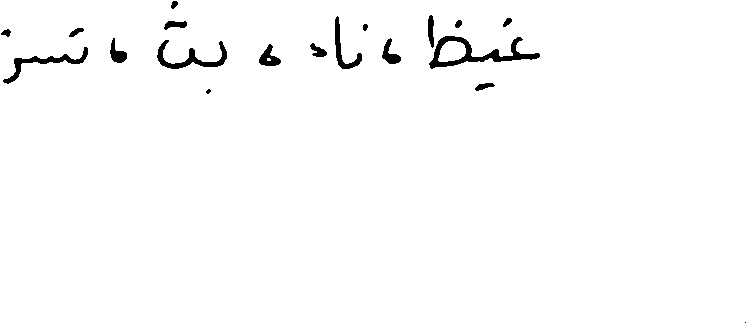 غيظ ، ناد ، بث ، تسز